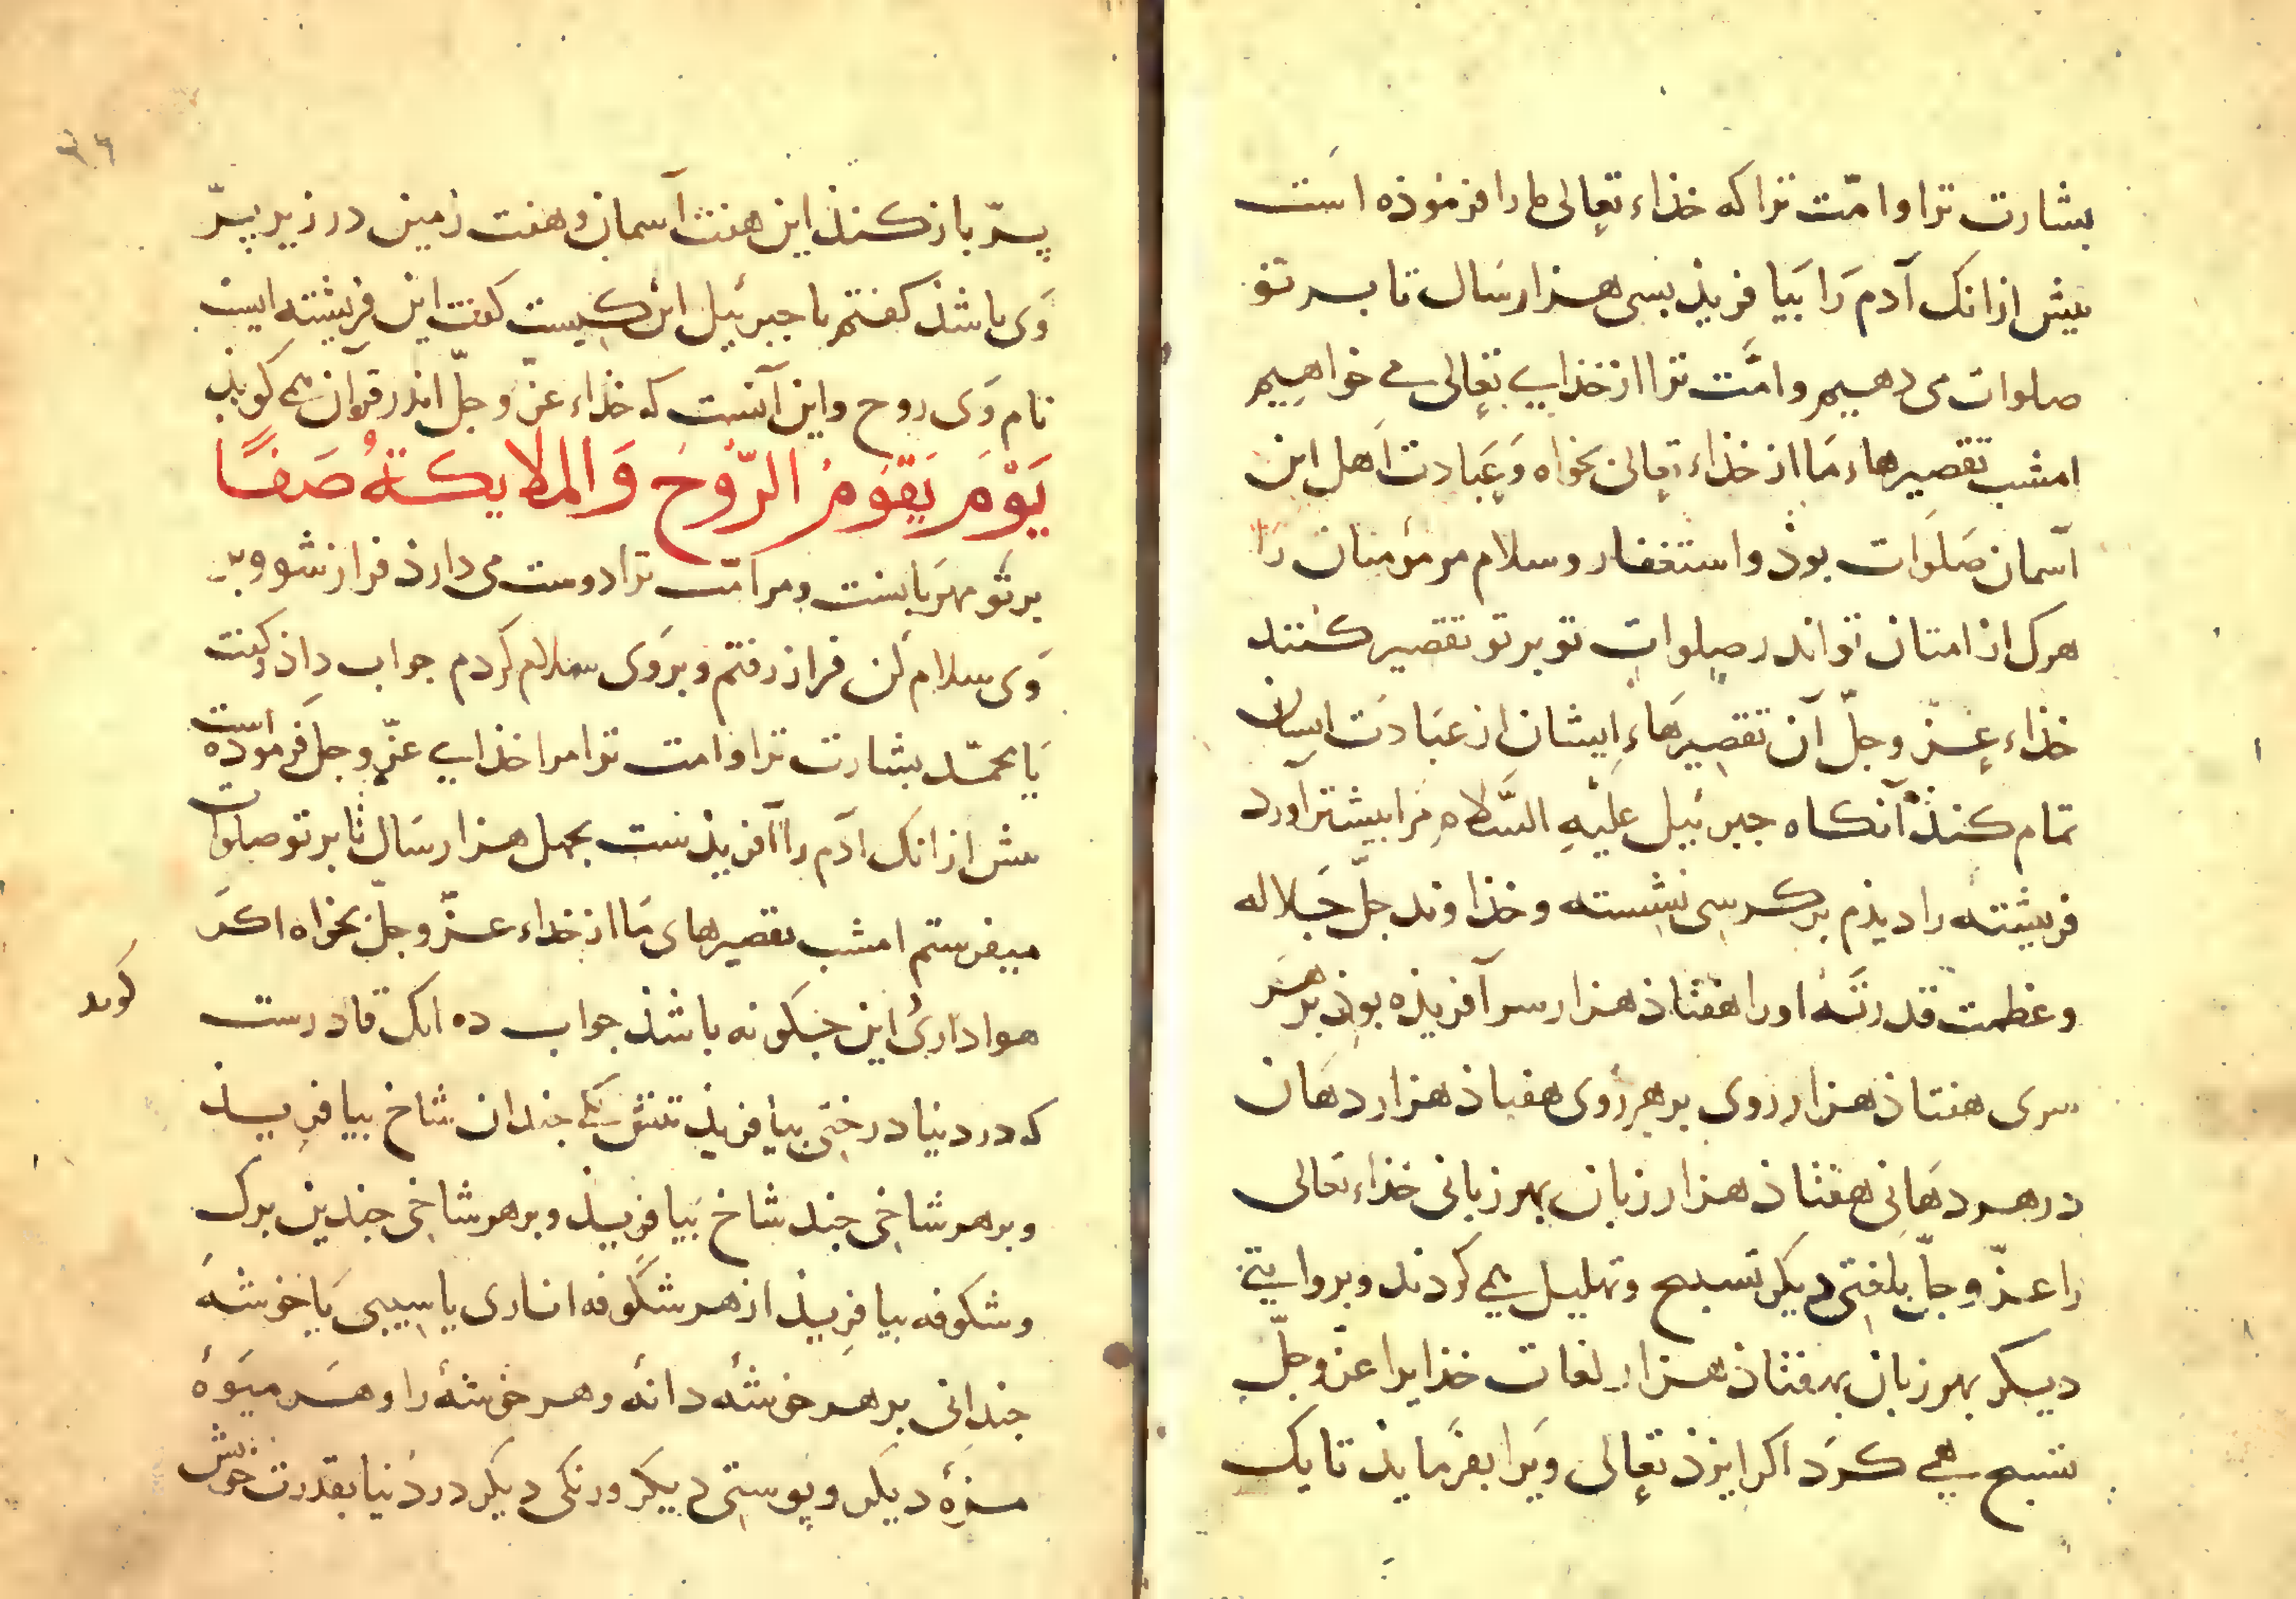 بشارت ترا و امّت ترا که خذاء تعالی ما را فرموذه است
بیش ازانک آدم رَا بَیافریذ بسی هزار سَال تا بر تو
صلوات می دهیم و امَّت ترا از خذایِ تعالی می خواهیم
امشب تقصیرهاء مَا از خذاء تعالی بخواه وَ عِبَادت اَهل این
آسمان صَلَوات بوذ و استغفار و سلام مر مؤمنان را
هرک از امتان تو اندر صلوات تو بر تو تقصیر کنند
خذاء عزّ وجلّ آن تقصیرهَاءِ ایشان از عبَادَت ایشان
تمام کنذ آنکاه جبرئیل علَیْهِ السَّلام مَرا بیشتر آورد
فریشتهٔ را دیذم بر کرسی نشِسته و خذاوند جلّ جَلاله
و عظمت قدرتَهُ او را هفتاذ هزار سر آفریذه بوذ بر هر
سری هفتاذ هزار روی بر هر رُوی هفتاذ هزار دهَان
در هر دهَانی هفتاذ هزار زبان بهر زبانی خذاء تعالی
را عزّ وجلّ بلغتی دیکر تسبیح و تهلیل همی کردند و بروایتی
دیکر بهر زبان بهفتاذ هزار لغات خذایرا عزّ وجلّ
تسبیح همی کرَد اکر ایزذ تعالی وَیرا بفرَماید تا یک
پرّ باز کنذ این هفت آسمان و هفت زمین در زیر پرّ
وَی باشذ کفتم یا جبرئیل این کیست کفت این فریشته ایست
نام وَی روح و این آنست که خذاء عزّ وجلّ اندر قرآن همی کویذ
يَوْمَ يَقُومُ الرُّوحُ وَالملايكةُ صَفًّا
بر تو مهرَبانست و مر امّت ترا دوست می دارذ فراز شو و بر
وَی سلام کن فراز رفتم و بروَی سلام کردم جواب داذ و کفت
یَا محمّد بشارت ترا و امت ترا مرا خذایِ عزّ وجل فرموذه است
بیش ازانک آدَم را آفریذست بچهل هزار سَال تا بر تو صلوات
میفرستم امشب تقصیرهای مَا از خذاء عزّ وجلّ بخواه اکَر
کوید
هواداریُ این جکونه باشذ جواب ده انک قادرست
که در دنیا درختی بیافریذ تنش یکی جندان شاخ بیافریذ
و بر هر شاخی جند شاخ بَیافریذ و بر هر شاخی جندین برک
و شکوفه بیافریذ از هر شکوفه اناری یا سیبی یَا خوشَهٔ
جندانی بر هر خوشهٔ دانهٔ و هر خوشهٔ را و هر میَوهٔ
مزهٔ دیکر و پوستی دیکر و رنکی دیکر در دنیا بقدرت خویش